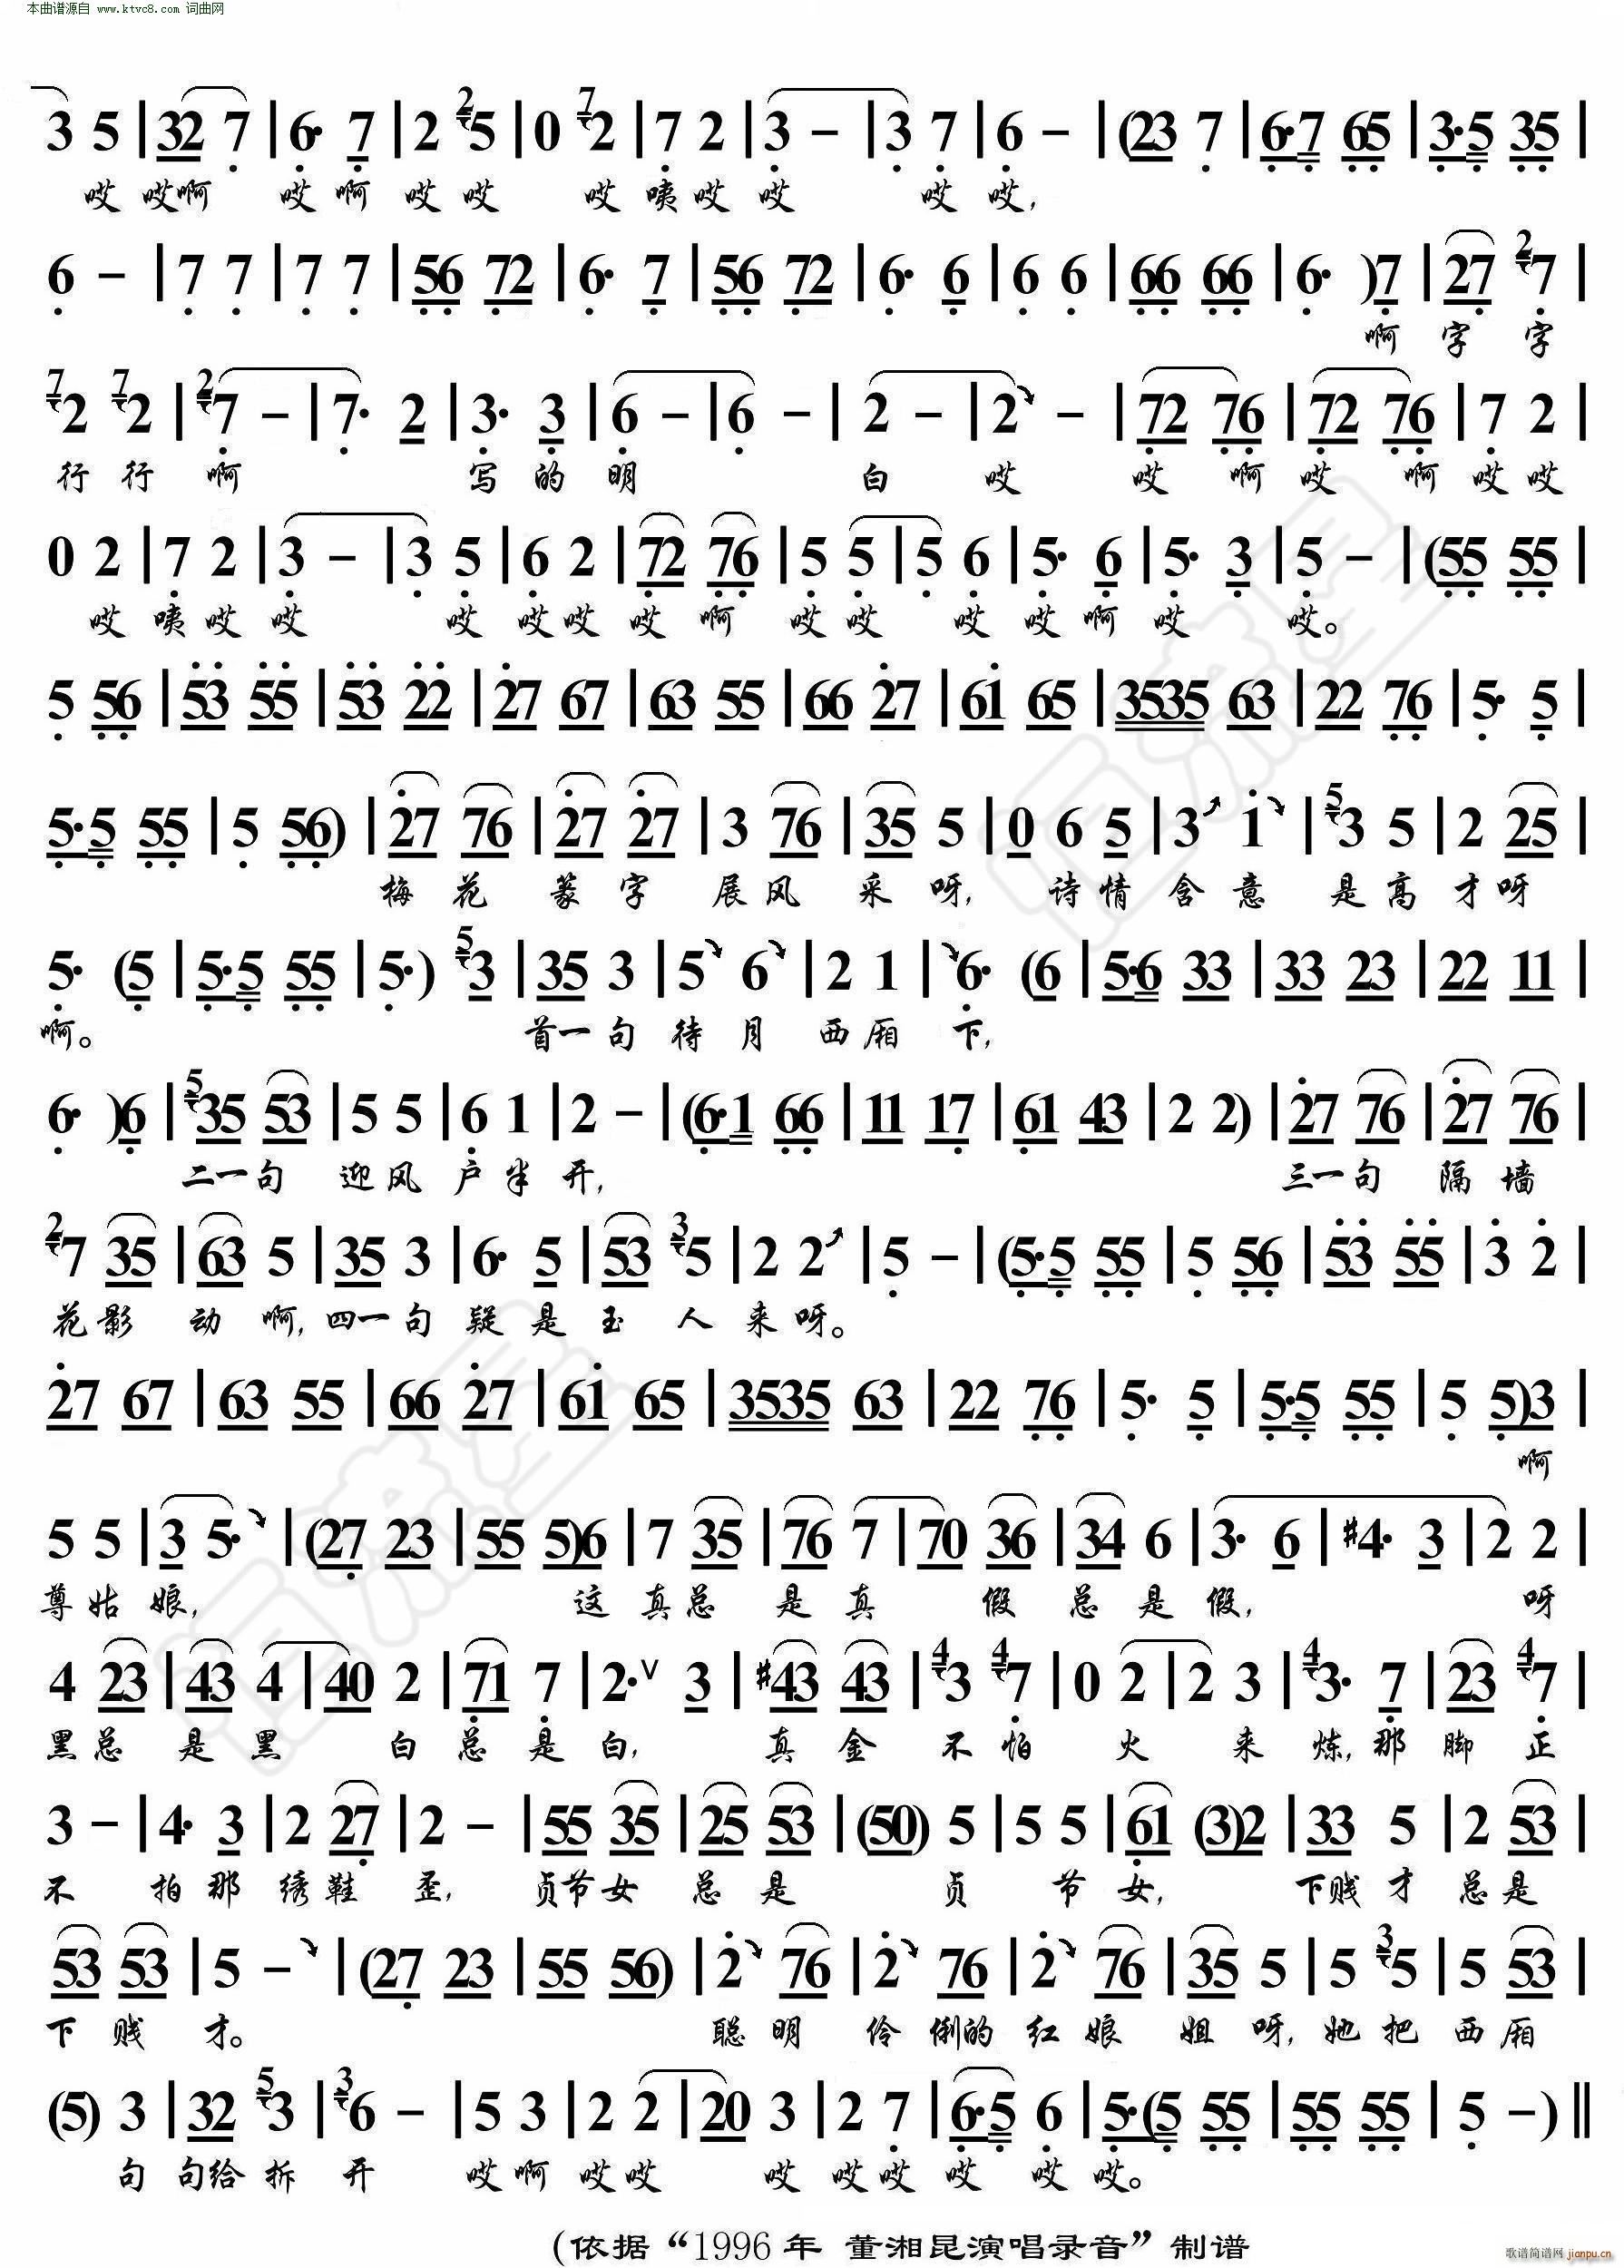 本曲谱源自 www.ktvc8.com 词曲网
3 5 | 32 7 | 6· 7 | 2 2 5 | 0 7 2 | 7 2 | 3 － | 3 7 | 6 － | (23 7 | 6·7 65 | 3·5 35 |
哎 哎啊 哎 啊 哎 哎 哎 咦 哎 哎 哎 哎,
6 － | 7 7 | 7 7 | 56 72 | 6· 7 | 56 72 | 6· 6 | 6 6 | 66 66 | 6· )7 | 27 2 7 |
啊 字 字
7 2 7 2 | 2 7 － | 7· 2 | 3· 3 | 6 － | 6 － | 2 － | 2 － | 72 76 | 72 76 | 7 2 |
行 行 啊 写 的 明 白 哎 哎 啊 哎 啊 哎 哎
0 2 | 7 2 | 3 － | 3 5 | 6 2 | 72 76 | 5 5 | 5 6 | 5· 6 | 5· 3 | 5 － | (55 55 |
哎 咦 哎 哎 哎 哎 哎 哎 啊 哎 哎 哎 哎 啊 哎 哎。
5 56 | 53 55 | 53 22 | 27 67 | 63 55 | 66 27 | 61 65 | 3535 63 | 22 76 | 5· 5 |
5·5 55 | 5 56) | 27 76 | 27 27 | 3 76 | 35 5 | 0 6 5 | 3 1 | 5 3 5 | 2 25 |
梅 花 篆 字 展 风 采 呀, 诗 情 含 意 是 高 才 呀
5· (5 | 5·5 55 | 5·) 5 3 | 35 3 | 5 6 | 2 1 | 6· (6 | 5·6 33 | 33 23 | 22 11 |
啊。 首 一 句 待 月 西 厢 下,
6· )6 | 5 35 53 | 5 5 | 6 1 | 2 － | (6·1 66 | 11 17 | 61 43 | 2 2) | 27 76 | 27 76 |
二 一 句 迎 风 户 半 开, 三 一 句 隔 墙
2 7 35 | 63 5 | 35 3 | 6· 5 | 53 3 5 | 2 2 | 5 － | (5·5 55 | 5 56 | 53 55 | 3 2 |
花 影 动 啊, 四 一 句 疑 是 玉 人 来 呀。
27 67 | 63 55 | 66 27 | 61 65 | 3535 63 | 22 76 | 5· 5 | 5·5 55 | 5 5)3 |
啊
5 5 | 3 5· | (27 23 | 55 5)6 | 7 35 | 76 7 | 70 36 | 34 6 | 3· 6 | #4· 3 | 2 2 |
尊 姑 娘, 这 真 总 是 真 假 总 是 假, 呀
4 23 | 43 4 | 40 2 | 71 7 | 2·∨ 3 | #43 43 | 4 3 4 7 | 0 2 | 2 3 | 4 3· 7 | 23 4 7 |
黑 总 是 黑 白 总 是 白, 真 金 不 怕 火 来 炼, 那 脚 正
3 － | 4· 3 | 2 27 | 2 － | 55 35 | 25 53 | (50) 5 | 5 5 | 61 (3)2 | 33 5 | 2 53 |
不 拍 那 绣 鞋 歪, 贞 节 女 总 是 贞 节 女, 下 贱 才 总 是
53 53 | 5 － | (27 23 | 55 56) | 2 76 | 2 76 | 2 76 | 35 5 | 5 3 5 | 5 53 |
下 贱 才。 聪 明 伶 俐 的 红 娘 姐 呀, 她 把 西 厢
(5) 3 | 32 5 3 | 3 6 － | 5 3 | 2 2 | 20 3 | 2 7 | 6·5 6 | 5·(5 55 | 55 55 | 5 －) ‖
句 句 给 拆 开 哎 啊 哎 哎 哎 哎 哎 哎 哎 哎。
(依据“1996年 董湘昆演唱录音”制谱
歌谱简谱网
jianpu.cn